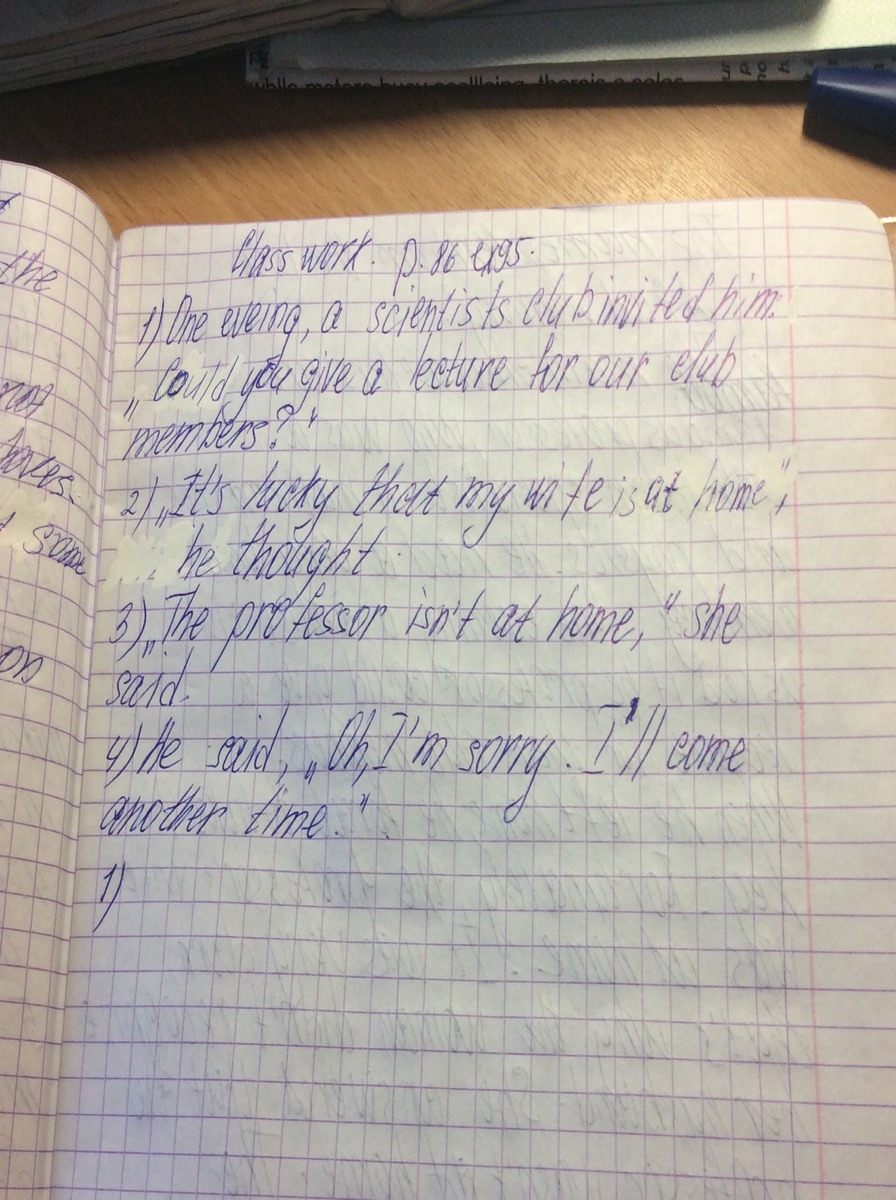 while meters busy
Class work. p. 86 ex95.
1) One eveing, a scientists club invited him:
„Could you give a lecture for our club
members?“
2) „It's lucky that my wife is at home“,
he thought.
3) „The professor isn't at home,“ she
said.
4) He said, „Oh, I'm sorry. I'll come
another time.“
1)
the
not
some
on